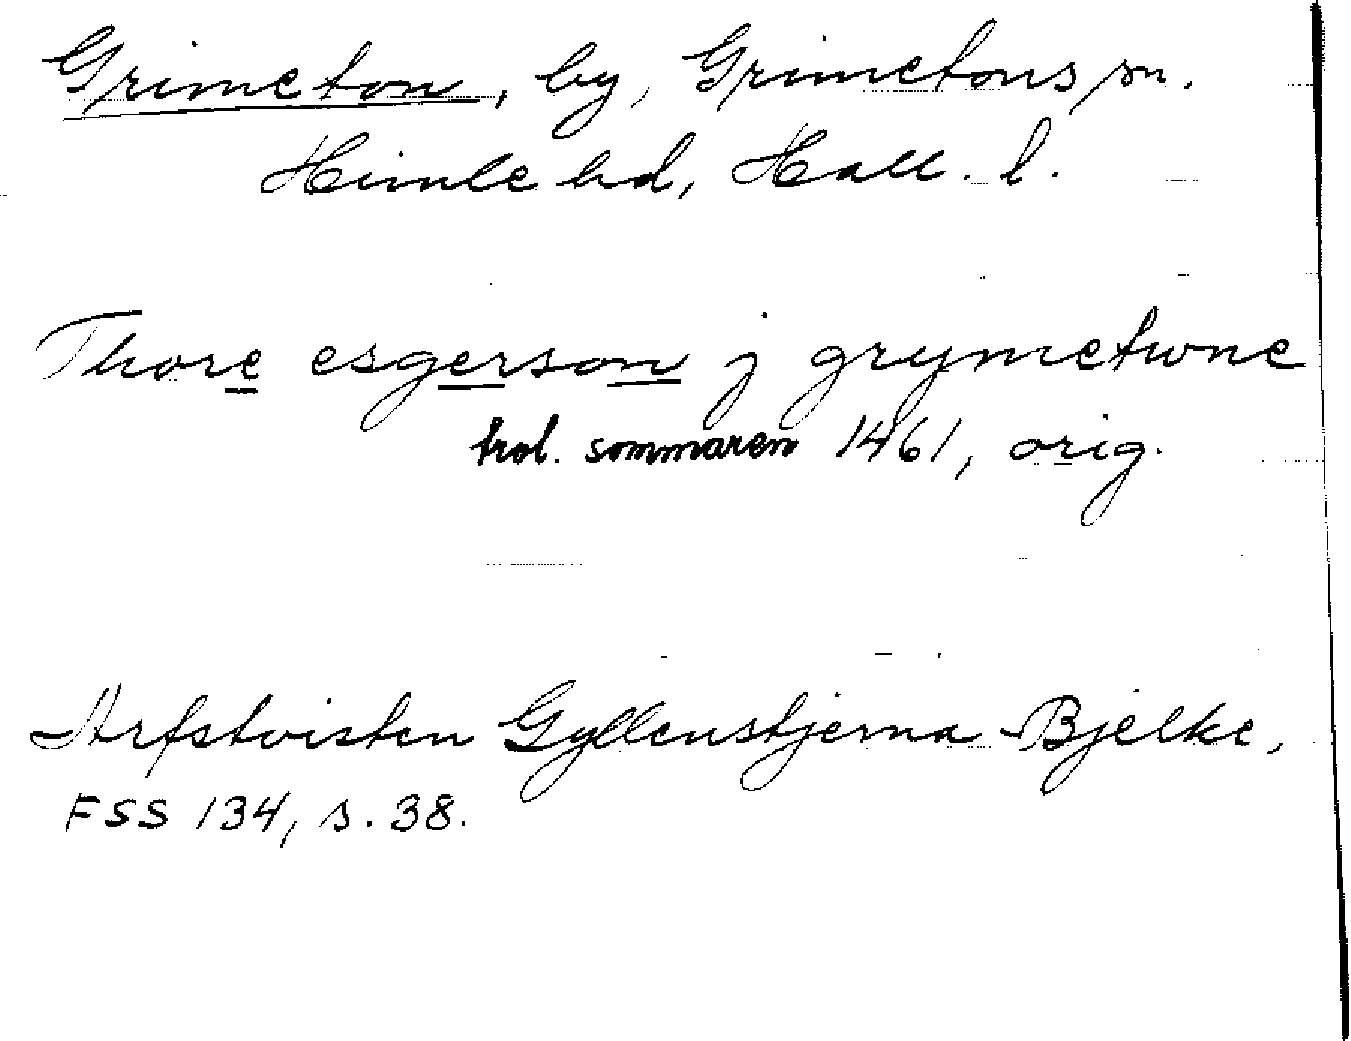 Grimeton, by, Grimetons sn.
Himle hd, Hall. l.
Thore esgerson j grymetwne
trol. sommaren 1461, orig.
Arfstvisten Gyllenstjerna-Bjelke,
FSS 134, s. 38.